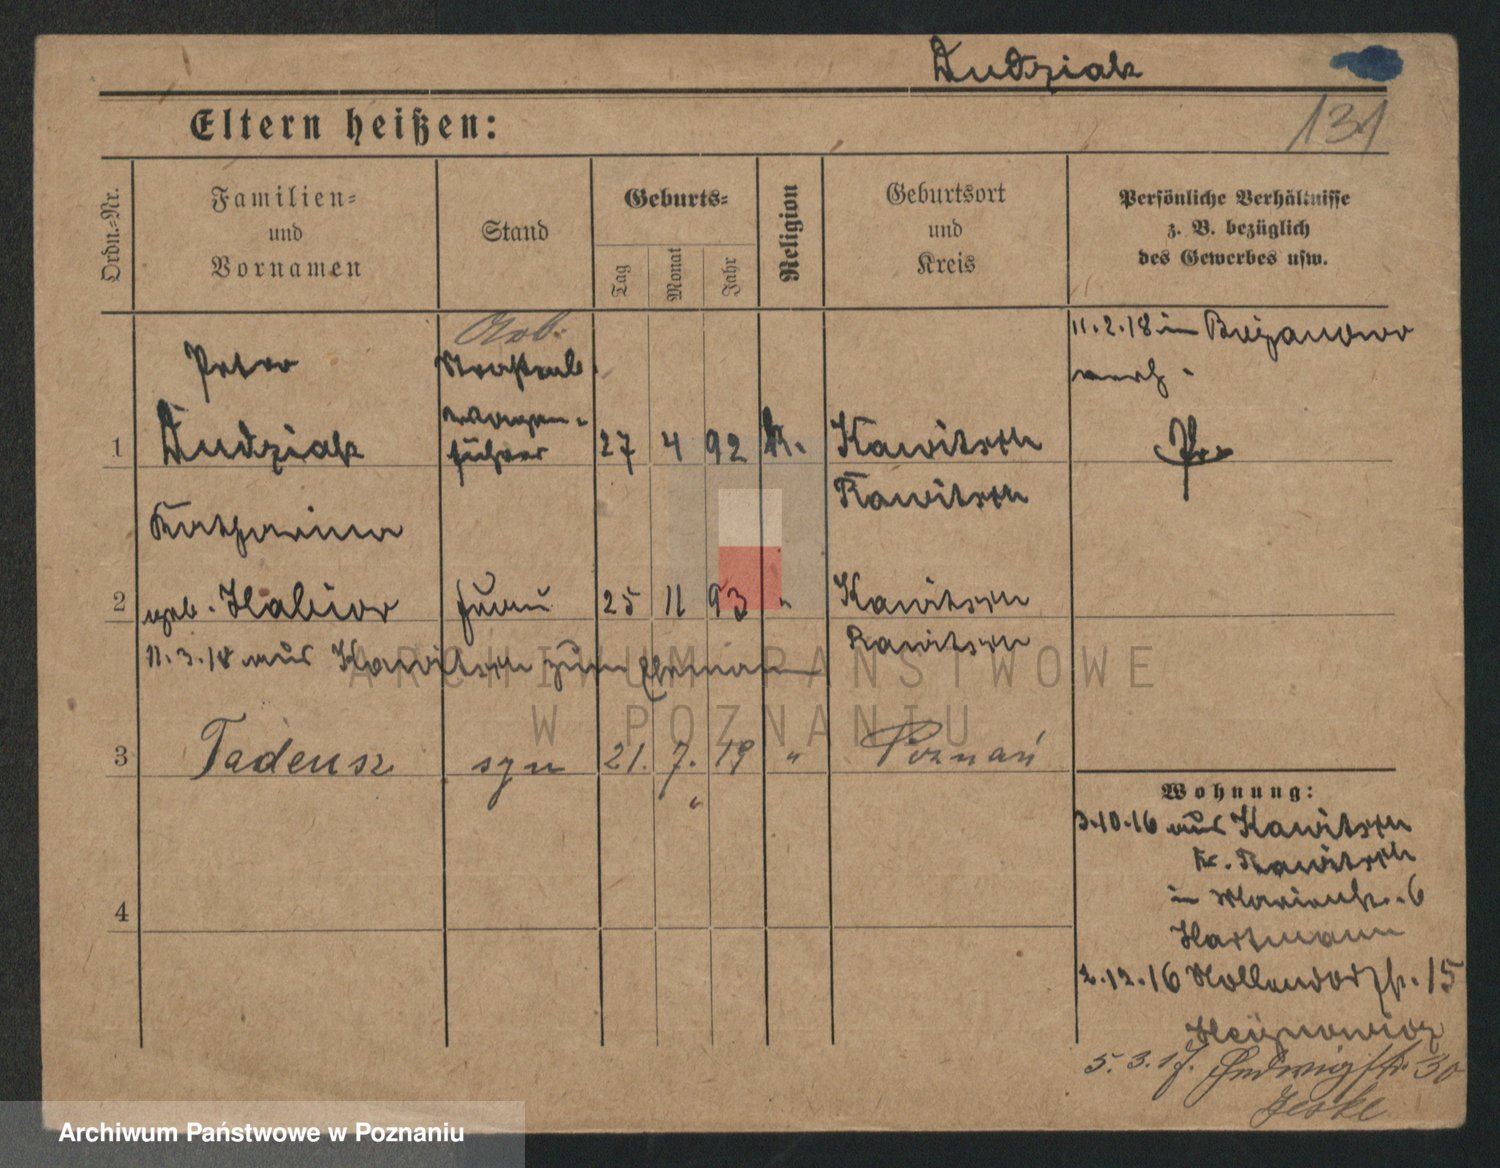 Dudziak
131
Eltern heißen:
Ordn.-Nr.
Familien-
und
Vornamen
Stand
Geburts-
Tag
Monat
Jahr
Religion
Geburtsort
und
Kreis
Persönliche Verhältnisse
z. B. bezüglich
des Gewerbes usw.
Arb.
11.2.18 in
verh.
Peter
Straßenb
wagen-
1 Dudziak führer 27 4 92 K. Kawitsch
Rawitsch
Katharina
2 geb. frau 25 11 93 " Kawitsch
11.3.18 aus Kawitsch zum Ehemann
Rawitsch
3 Tadeusz syn 21. 7. 19 " Poznań
"
4
Wohnung:
3.10.16 aus Kawitsch
Kr. Rawitsch
in Marienstr. 6
Hartmann
2.12.16 Nollendorfstr. 15
5.3.17. Hedwigstr. 30
Jeske
ARCHIWUM PAŃSTWOWE
W POZNANIU
Archiwum Państwowe w Poznaniu